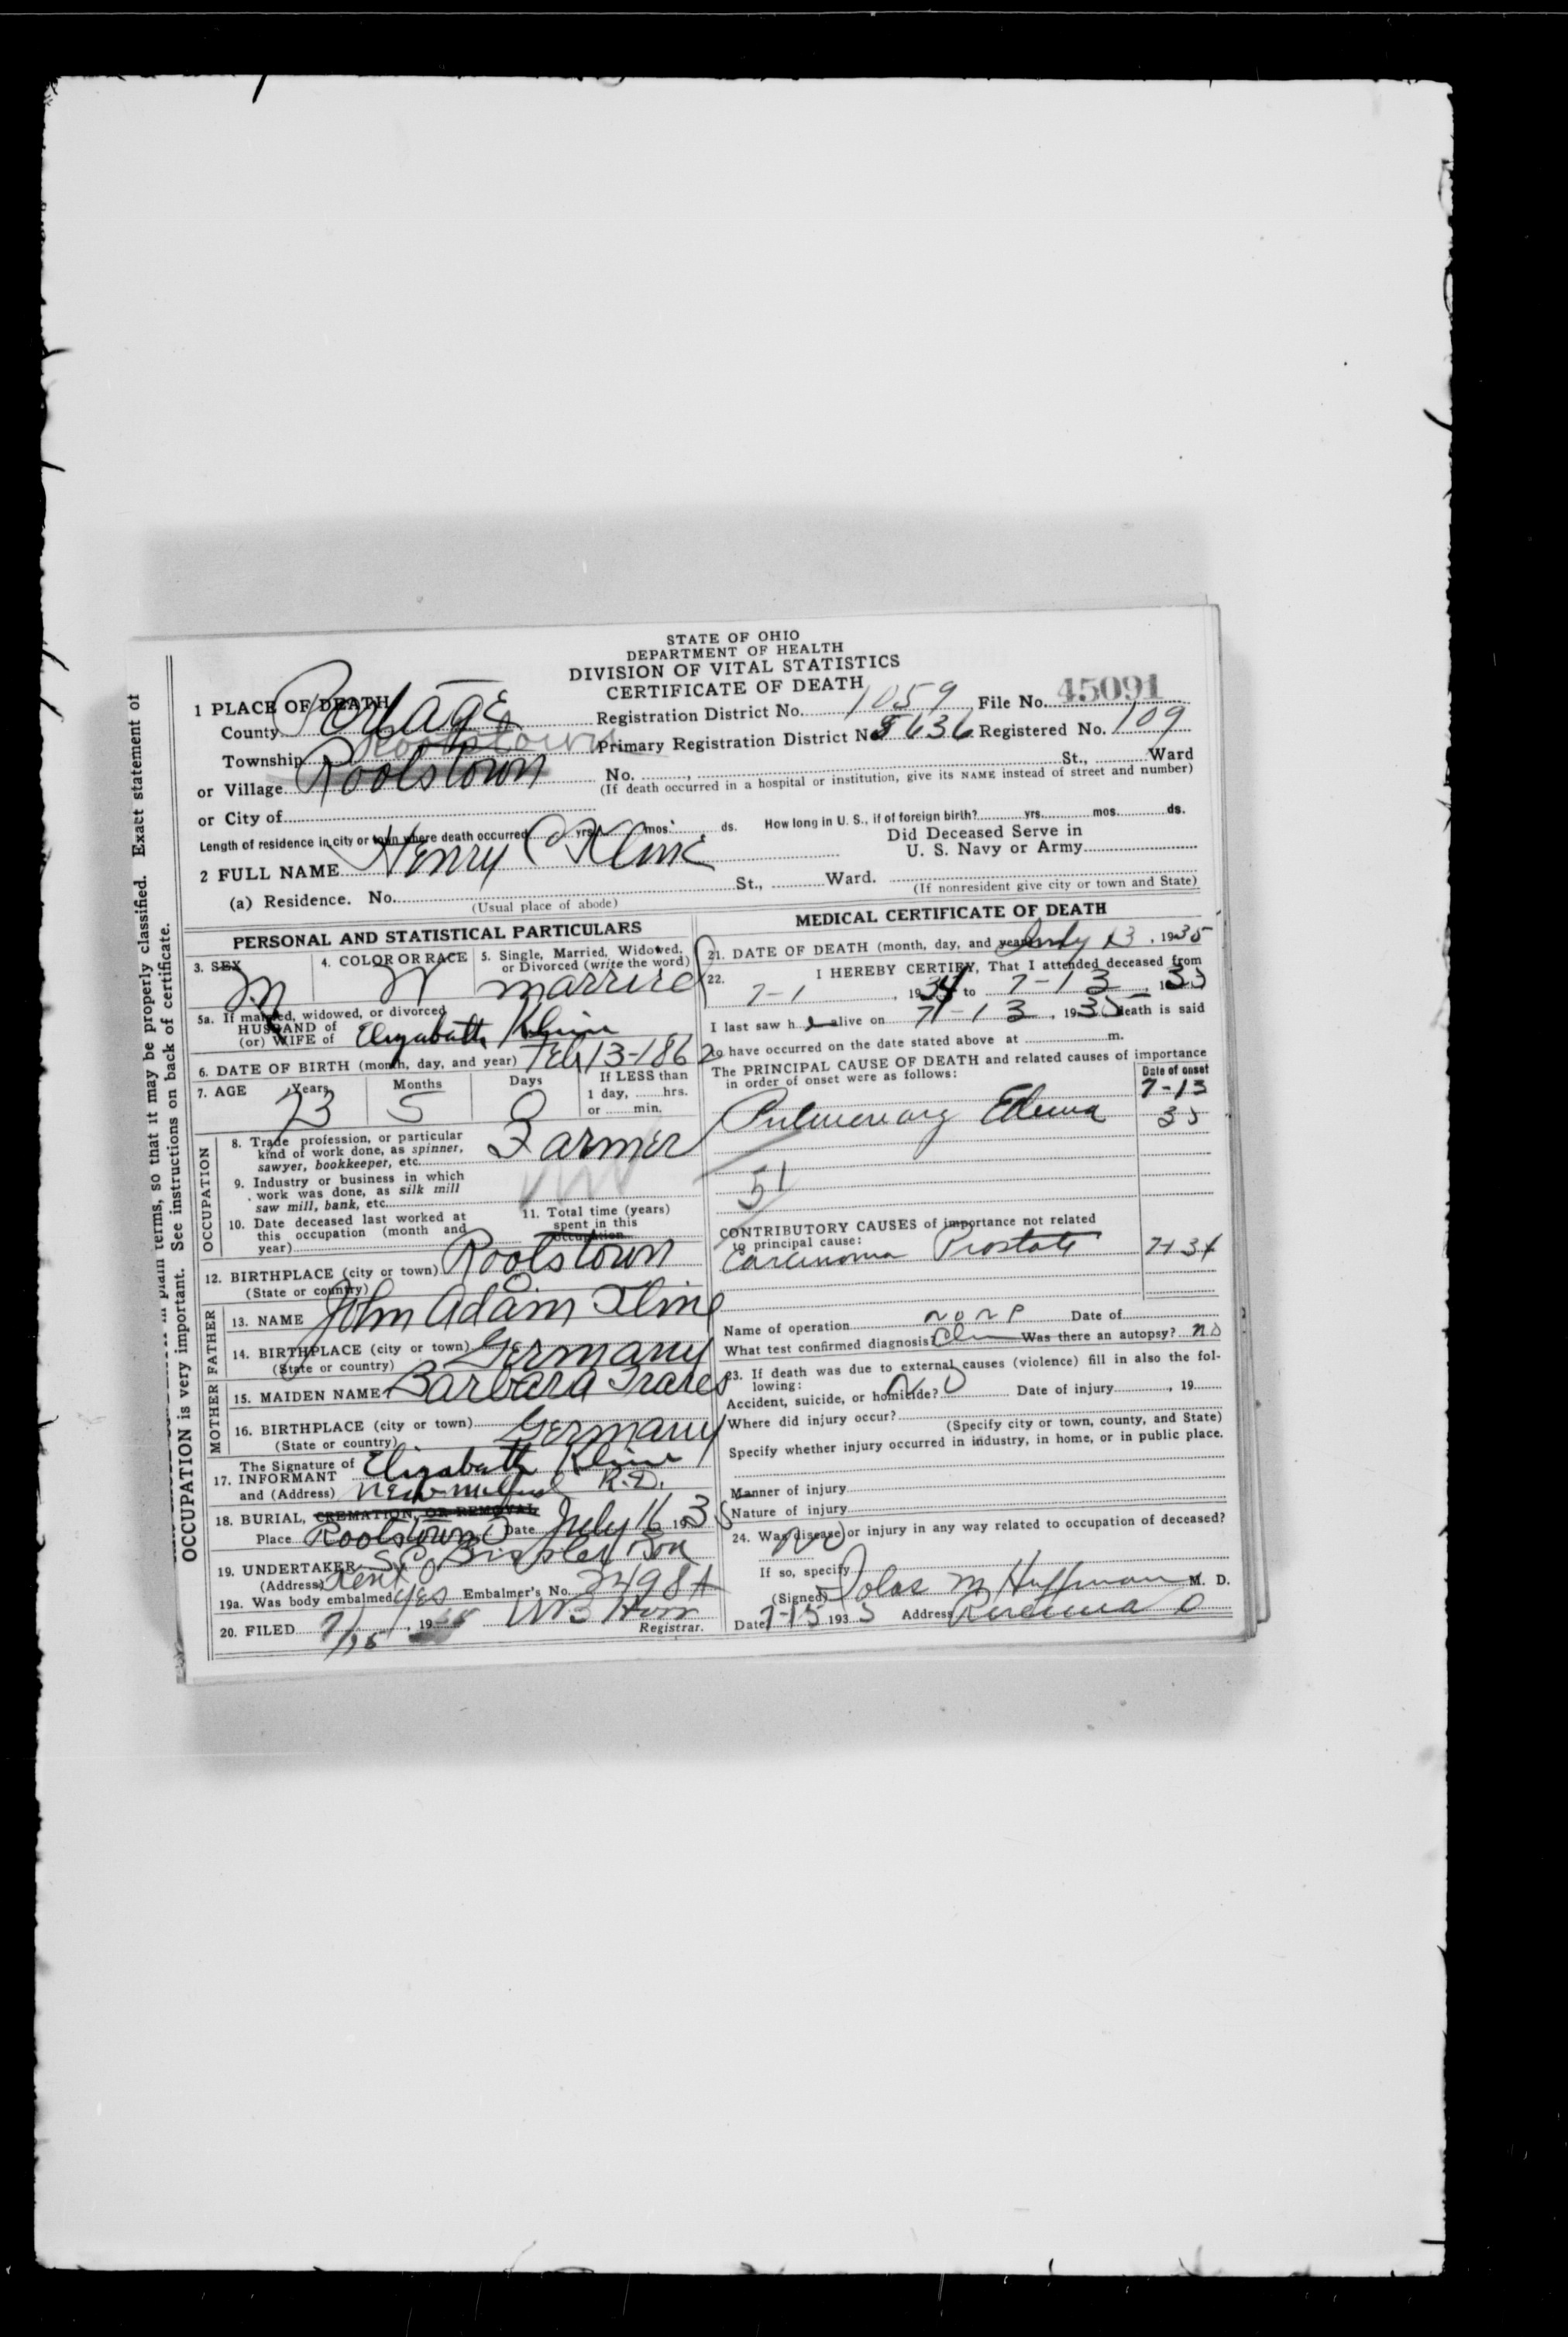 STATE OF OHIO
DEPARTMENT OF HEALTH
DIVISION OF VITAL STATISTICS
CERTIFICATE OF DEATH
1 PLACE OF DEATH
County Portage Registration District No. 1059 File No. 45091
Township Rootstown Primary Registration District No 5636 Registered No. 109
or Village Rootstown No. , St., Ward
(If death occurred in a hospital or institution, give its NAME instead of street and number)
or City of
Length of residence in city or town where death occurred yrs. mos. ds. How long in U. S., if of foreign birth? yrs. mos. ds.
Did Deceased Serve in
U. S. Navy or Army
2 FULL NAME Henry Kline
(a) Residence. No. St., Ward.
(Usual place of abode) (If nonresident give city or town and State)
PERSONAL AND STATISTICAL PARTICULARS
3. SEX 4. COLOR OR RACE 5. Single, Married, Widowed,
or Divorced (write the word)
M W married
5a. If married, widowed, or divorced
HUSBAND of
(or) WIFE of Elizabeth Kline
6. DATE OF BIRTH (month, day, and year) Feb 13-1862
7. AGE Years Months Days If LESS than
1 day, hrs.
or min.
73 5 0
OCCUPATION
8. Trade profession, or particular
kind of work done, as spinner,
sawyer, bookkeeper, etc. Farmer
9. Industry or business in which
work was done, as silk mill
saw mill, bank, etc.
10. Date deceased last worked at
this occupation (month and
year)
11. Total time (years)
spent in this
occupation
12. BIRTHPLACE (city or town) Rootstown
(State or country) O
FATHER
13. NAME John Adam Kline
14. BIRTHPLACE (city or town) Germany
(State or country)
MOTHER
15. MAIDEN NAME Barbara Trares
16. BIRTHPLACE (city or town) Germany
(State or country)
The Signature of
17. INFORMANT Elizabeth Kline
and (Address) New Milford R.D.
18. BURIAL, CREMATION, OR REMOVAL
Place Rootstown O Date July 16 1935
19. UNDERTAKER S.C. Bissler Son
(Address) Kent O
19a. Was body embalmed yes Embalmer's No. 3498A
20. FILED 7/15, 19 Registrar.
MEDICAL CERTIFICATE OF DEATH
21. DATE OF DEATH (month, day, and year) July 13, 1935
22. I HEREBY CERTIFY, That I attended deceased from
7-1, 1934 to 7-13, 1935
I last saw h alive on 7-13, 1935 death is said
to have occurred on the date stated above at m.
The PRINCIPAL CAUSE OF DEATH and related causes of importance
in order of onset were as follows:
Date of onset
7-13
Pulmonary Edema 35
51
CONTRIBUTORY CAUSES of importance not related
to principal cause:
Carcinoma Prostate 7-1 34
Name of operation none Date of
What test confirmed diagnosis? Clin Was there an autopsy? no
23. If death was due to external causes (violence) fill in also the fol-
lowing:
Accident, suicide, or homicide? No Date of injury , 19
Where did injury occur?
(Specify city or town, county, and State)
Specify whether injury occurred in industry, in home, or in public place.
Manner of injury
Nature of injury
24. Was disease or injury in any way related to occupation of deceased?
No
If so, specify
(Signed) M Huffman M. D.
Date 7-15 1935 Address Ravenna O
terms, so that it may be properly classified. Exact statement of
OCCUPATION is very important. See instructions on back of certificate.